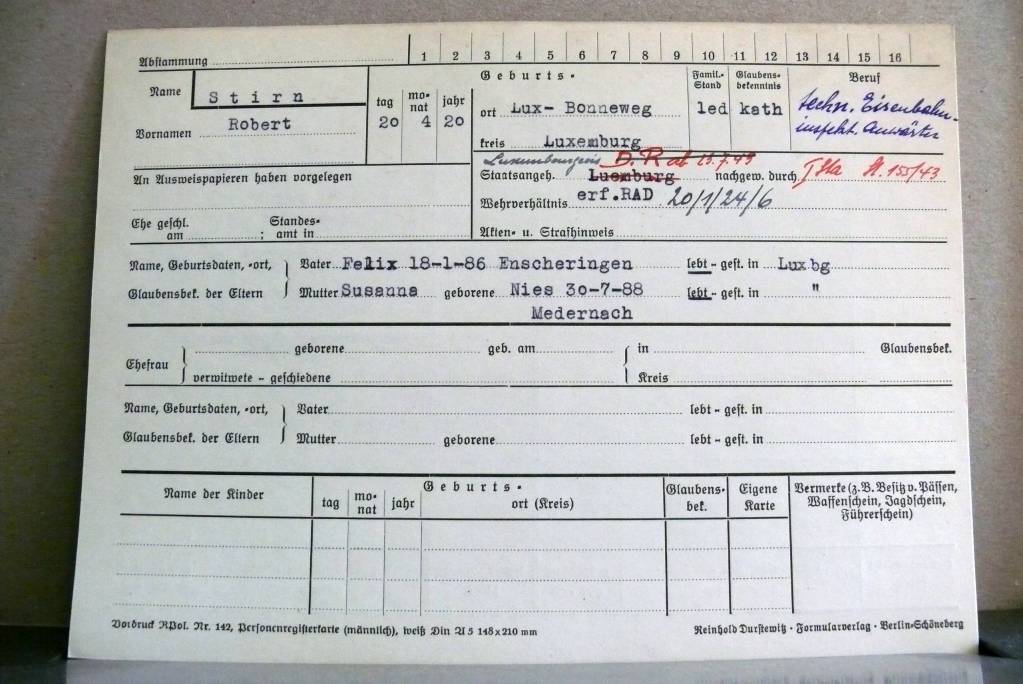 Abstammung 1 2 3 4 5 6 7 8 9 10 11 12 13 14 15 16
Name Stirn
Vornamen Robert
tag monat jahr
20 4 20
Geburts-
ort Lux- Bonneweg
kreis Luxemburg
Famil.-Stand
led
Glaubensbekenntnis
kath
Beruf
techn. Eisenbahn-
inspekt. Anwärter
An Ausweispapieren haben vorgelegen
Luxembourgeois D.R ab 15.7.43
Staatsangeh. Luemburg nachgew. durch A. 155/43
Wehrverhältnis erf.RAD 20/1/24/6
Ehe geschl. am ; Standesamt in
Akten- u. Strafhinweis
Name, Geburtsdaten, -ort, Vater Felix 18-1-86 Enscheringen lebt - gest. in Lux bg
Glaubensbek. der Eltern Mutter Susanna geborene Nies 30-7-88 lebt - gest. in "
Medernach
Ehefrau geborene geb. am in Glaubensbek.
verwitwete - geschiedene Kreis
Name, Geburtsdaten, -ort, Vater lebt - gest. in
Glaubensbek. der Eltern Mutter geborene lebt - gest. in
Name der Kinder
Geburts-
tag monat jahr ort (Kreis)
Glaubensbek.
Eigene Karte
Vermerke (z.B. Besitz v. Pässen,
Waffenschein, Jagdschein,
Führerschein)
Vordruck RPol. Nr. 142, Personenregisterkarte (männlich), weiß Din A 5 148x210 mm
Reinhold Durstewitz · Formularverlag · Berlin-Schöneberg